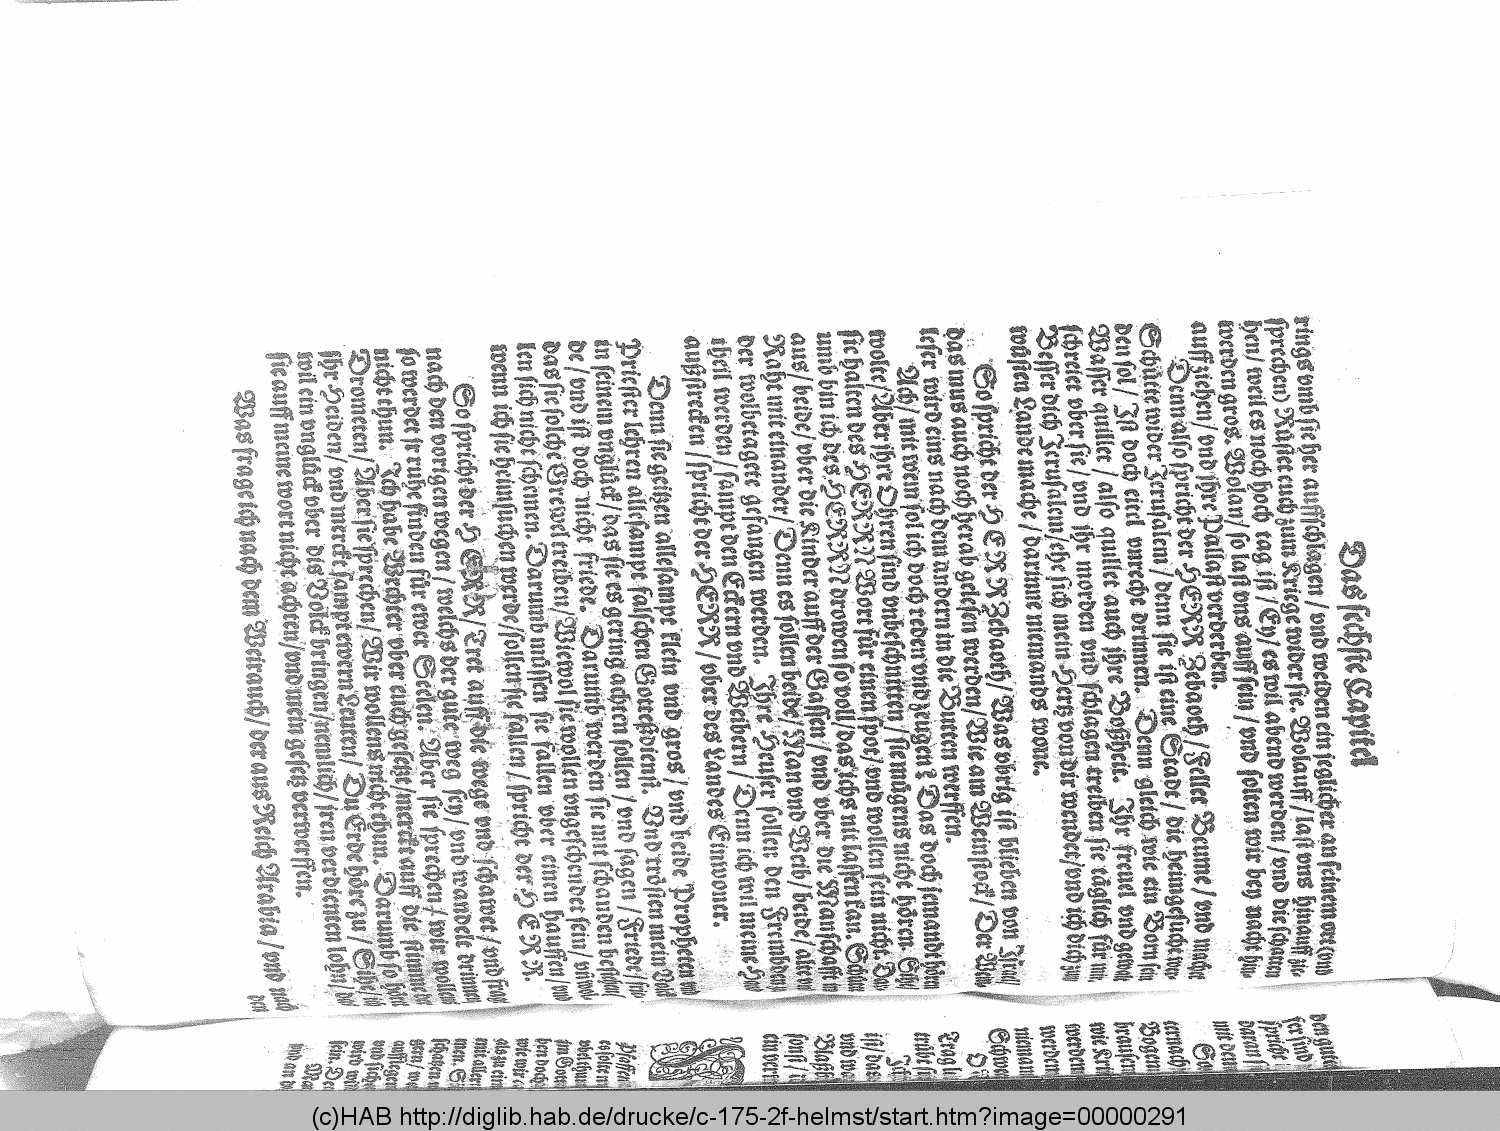 Das sechste Capitel
rings vmb sie her auffschlagen / vnd weiden ein jeglicher an seinem ort
sprechen) Rüstet euch zum Kriege wider sie. Wolauff / last vns hinauff
hen / weil es noch hoch tag ist / Ey / es wil abend werden / vnd die schatten
werden gros. Wolan / so last vns auff sein / vnd solten wir bey nacht
auffziehen / vnd jhre Pallast verderben.
Denn also spricht der HERR Zebaoth / Fellet Beume / vnd machet
Schütte wider Jerusalem / denn sie ist eine Stadt / die heimgesucht
den sol / Ist doch eitel vnrecht drinnen. Denn gleich wie ein Born sein
Wasser quillet / also quillet auch jhre Bosheit. Jhr freuel vnd gewalt
schreiet vber sie / vnd jhr morden vnd schlagen treiben sie täglich für mir
Besser dich Jerusalem / ehe sich mein Hertz von dir wende / vnd ich dich zum
wüsten Lande mache / darinne niemands wone.
So spricht der HERR Zebaoth / Was vbrig ist blieben von Israel /
das mus auch noch herab gelesen werden / Wie am Weinstock / Der Wein
leser wird eins nach dem andern in die Butten werffen.
Ach / mit wem sol ich doch reden vnd zeugen? Das doch jemand hören
wolte / Aber jhre Ohren sind vnbeschnitten / sie mügens nicht hören. Sihe
sie halten des HERRN Wort für einen spot / vnd wollen sein nicht. Darumb
vmb bin ich des HERRN drowen so voll / das ichs nit lassen kan. Schütte
aus / beide / vber die Kinder auff der Gassen / vnd vber die Manschafft im
Raht mit einander / Denn es sollen beide / Man vnd Weib / beide / alte vnd
der wolbetagete gefangen werden. Jhre Heuser sollen den Frembden
theil werden / sampt den Eckern vnd Weibern / Denn ich wil meine Hand
ausstrecken / spricht der HERR / vber des Landes Einwoner.
Denn sie geitzen allesampt klein vnd gros / vnd beide Propheten vnd
Priester lehren allesampt falschen Gottesdienst. Vnd trösten mein Volck
in seinem vnglück / das sie es gering achten sollen / vnd sagen / Friede / friede
de / vnd ist doch nicht friede. Darumb werden sie mit schanden bestehen /
das sie solche Grewel treiben / Wiewol sie wollen vngeschendet sein / vnd wol
len sich nicht schemen. Darumb müssen sie fallen vber einen hauffen / vnd
wenn ich sie heimsuchen werde / sollen sie fallen / spricht der HERR.
So spricht der HERR / Tret auff die wege vnd schawet / vnd fraget
nach den vorigen wegen / welchs der gute weg sey / vnd wandelt drinnen
so werdet jr ruhe finden für ewer Seelen. Aber sie sprechen / wir wollens
nicht thun. Ich habe Wechter vber euch gesetzt / mercket auff die stimme der
Drometen / Aber sie sprechen / Wir wollens nicht thun. Darumb so höret
jhr Heiden / vnd mercket sampt ewern Leuten / Du Erde höre zu / Sihe / ich
wil ein vnglück vber dis Volck bringen / nemlich / jren verdienten lohn /
sie auff meine wort nicht achten / vnd mein gesetz verwerffen.
Was frage ich nach dem Weirauch / der aus Reich Arabia / vnd nach
(c)HAB http://diglib.hab.de/drucke/c-175-2f-helmst/start.htm?image=00000291